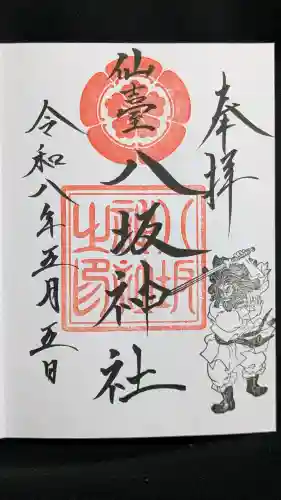 奉拝
仙臺
八坂神社
令和八年五月五日
八坂神社之印